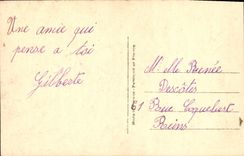 Une amie qui
pense a toi
Gilberte
M.elle Renée
Descôtes
61 Rue Coquebert
Reims